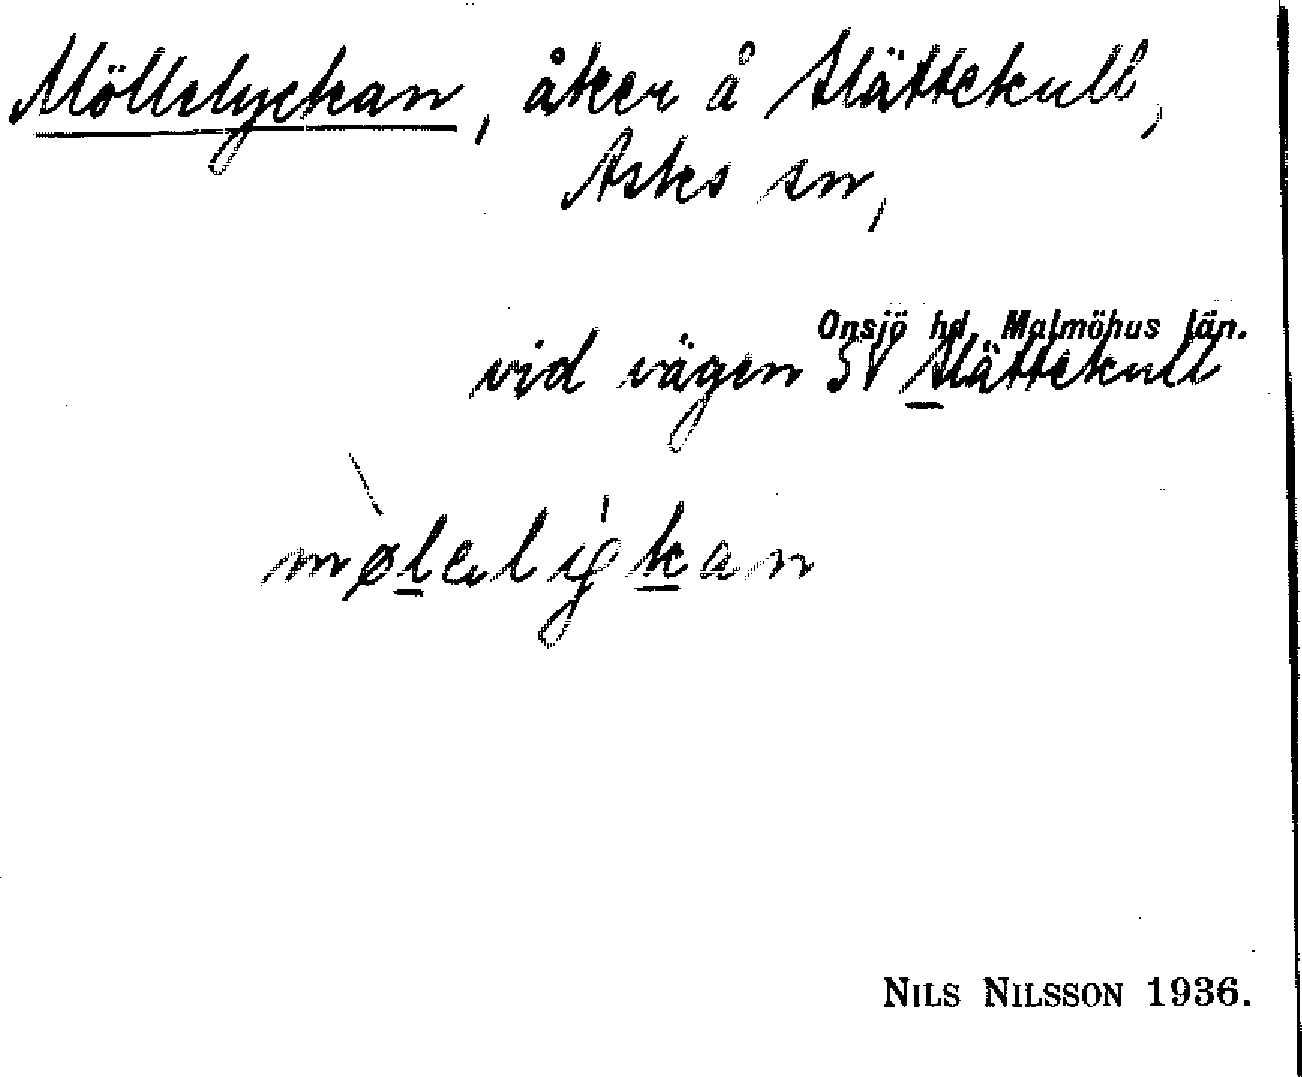 Möllelyckan, åker å Slättekull,
Asks sn,
Onsjö hd. Malmöhus län.
vid vägen SV Slättekull
møleligkan
NILS NILSSON 1936.